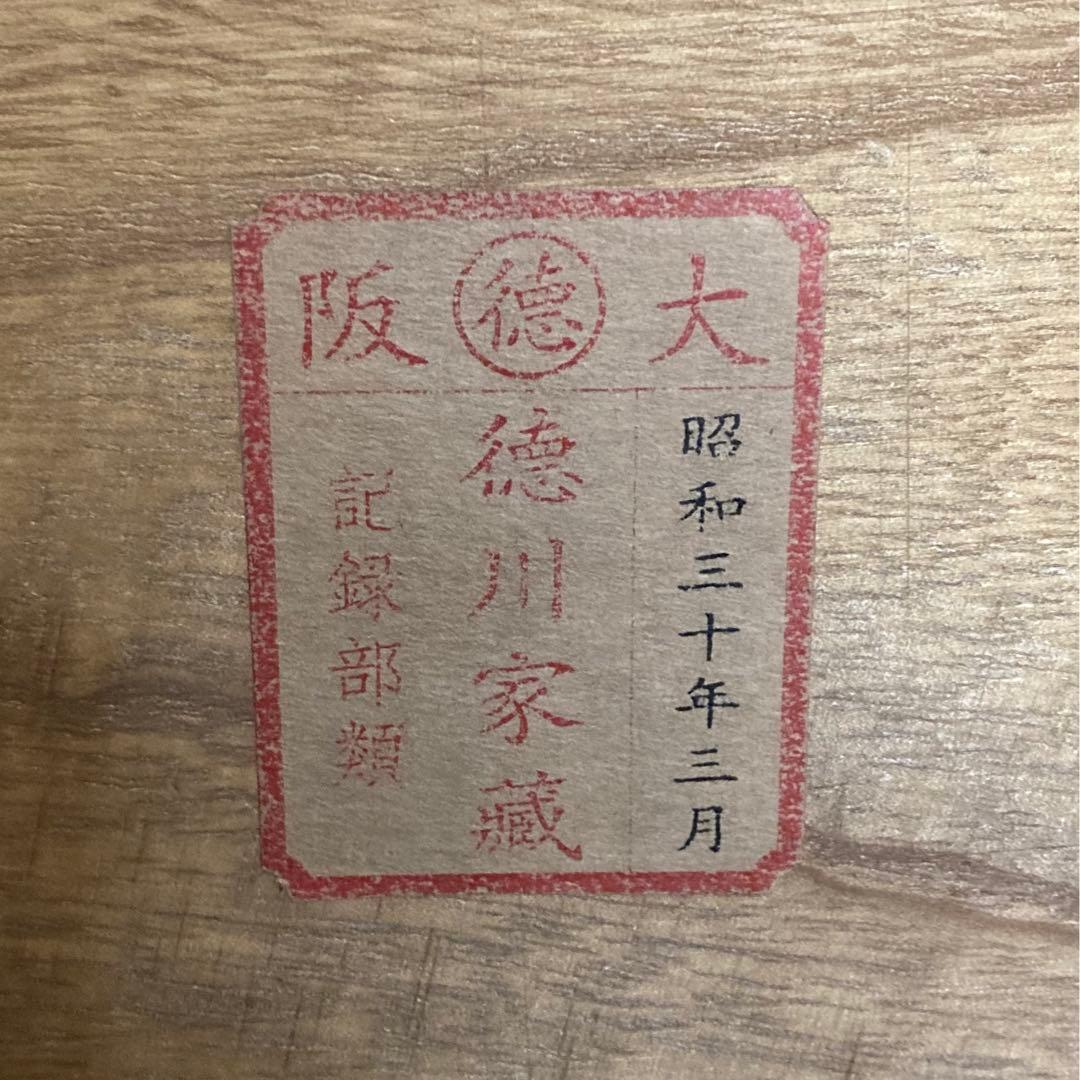 大㊕阪
昭和三十年三月
德川家藏
記録部類